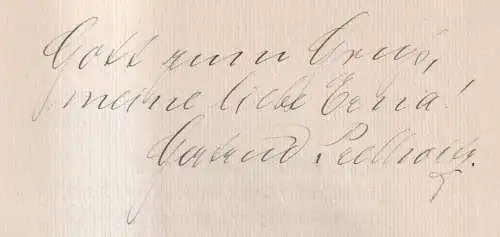 Gott zum Gruß,
meine liebe Erna!
Gertrud